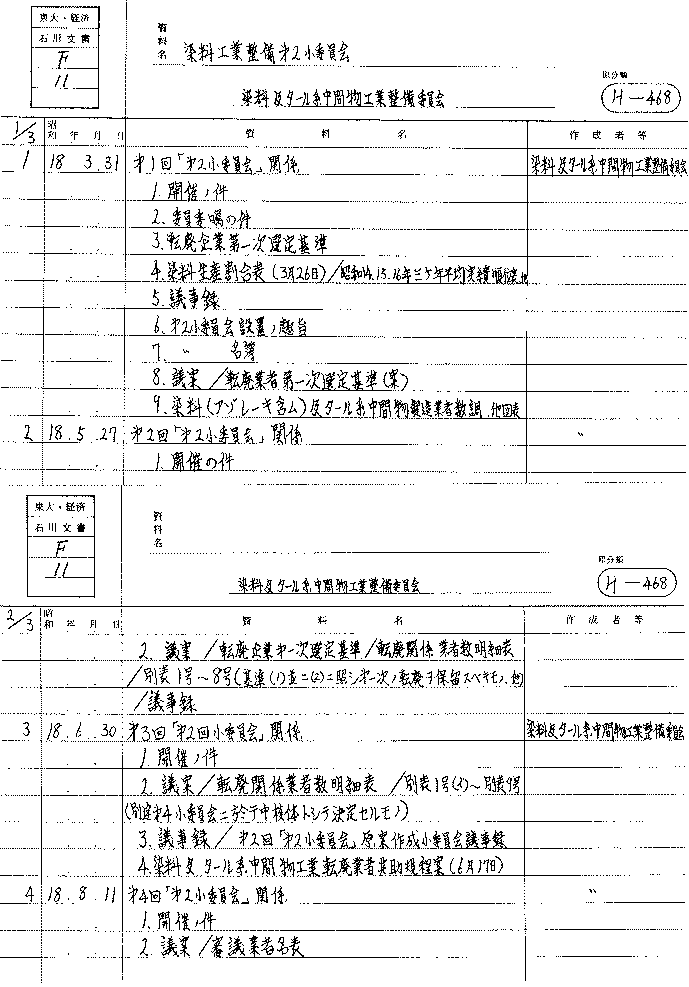 東大・経済
石川文書
F
11
資料名
染料工業整備オ2小委員会
染料及タール系中間物工業整備委員会
原分類
H-468
1/3 昭和 年 月 日 資料名 作成者等
1 18 3.31 オ1回「オ2小委員会」関係 染料及タール系中間物工業整備委員会
1. 開催ノ件
2. 委員委嘱の件
3. 転廃企業第一次選定基準
4. 染料生産割合表(3月26日)/昭和14.15.16年三ヶ年平均実績順位表 他
5. 議事録
6. オ2小委員会設置ノ趣旨
7. 〃 名簿
8. 議案/転廃業者第一次選定基準(案)
9. 染料(アゾレーキ含ム)及タール系中間物製造業者数調 他図表
2 18.5.27 オ2回「オ2小委員会」関係 〃
1. 開催の件
東大・経済
石川文書
F
11
資料名
染料及タール系中間物工業整備委員会
原分類
H-468
2/3 昭和 年 月 日 資料名 作成者等
2. 議案/転廃企業オ一次選定基準/転廃関係業者数明細表
/別表1号~8号(基準(1)並ニ(2)ニ照シオ一次ノ転廃ヲ保留スベキモノ、他)
/議事録
3 18.6.30 オ3回「オ2回小委員会」関係 染料及タール系中間物工業整備委員会
1. 開催ノ件
2. 議案/転廃関係業者数明細表 /別表1号(イ)~別表9号
(別途オ4小委員会ニ於テ中核体トシテ決定セルモノ)
3. 議事録/オ2回「オ2小委員会」原案作成小委員会議事録
4. 染料及タール系中間物工業転廃業者共助規程案(6月17日)
4 18.8.11 オ4回「オ2小委員会」関係 〃
1. 開催ノ件
2. 議案/審議業者名表